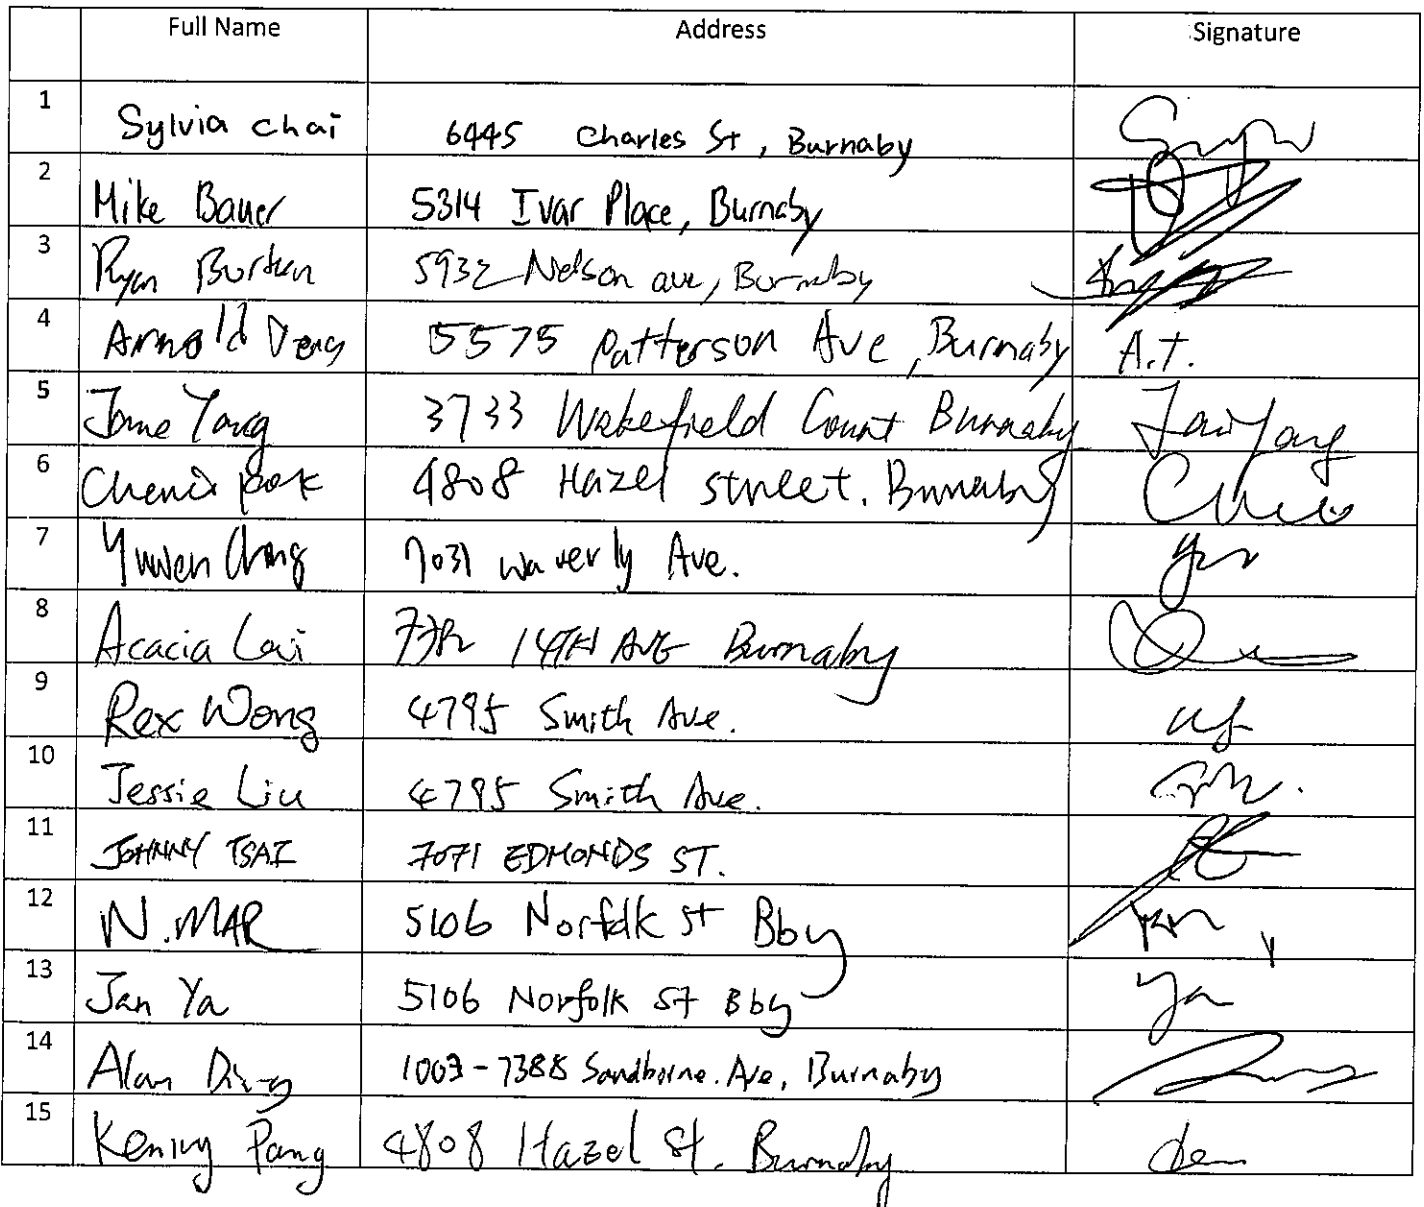 Full Name Address Signature
1 Sylvia chai 6445 Charles St, Burnaby
2 Mike Bauer 5314 Ivar Place, Burnaby
3 Ryan 5932 Nelson ave, Burnaby
4 Arnold 5575 Patterson Ave, Burnaby A.T.
5 Jane Yang 3733 Wakefield Court Burnaby
6 4808 Hazel street. Burnaby
7 Yuwen 7031 waverly Ave.
8 Acacia Lai 14TH AVE Burnaby
9 Rex Wong 4795 Smith Ave.
10 Jessie Liu 4795 Smith Ave.
11 JOHNNY TSAI 7071 EDMONDS ST.
12 N. MAR 5106 Norfolk St Bby
13 Jan Ya 5106 Norfolk St Bby Ya
14 Alan Ding 1003-7388 Sandborne. Ave, Burnaby
15 Pang 4808 Hazel St. Burnaby